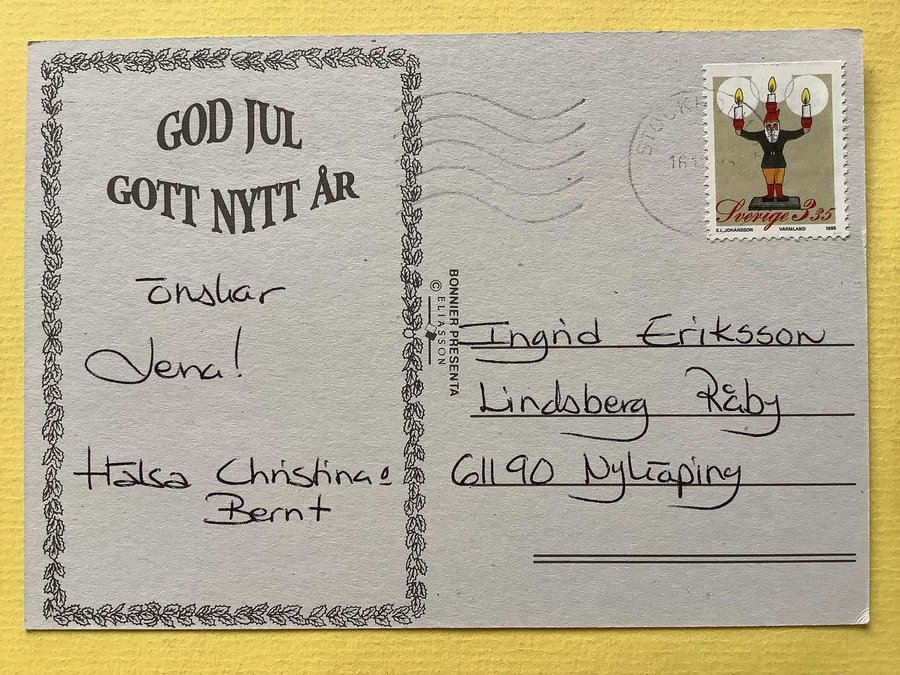 GOD JUL
GOTT NYTT ÅR
önskar
Lena!
Hälsa Christina o
Bernt
BONNIER PRESENTA
© ELIASSON
STOCK
16
Sverige 3 35
E.L.JOHANSSON VÄRMLAND 1995
Ingrid Eriksson
Lindsberg Råby
61190 Nyköping